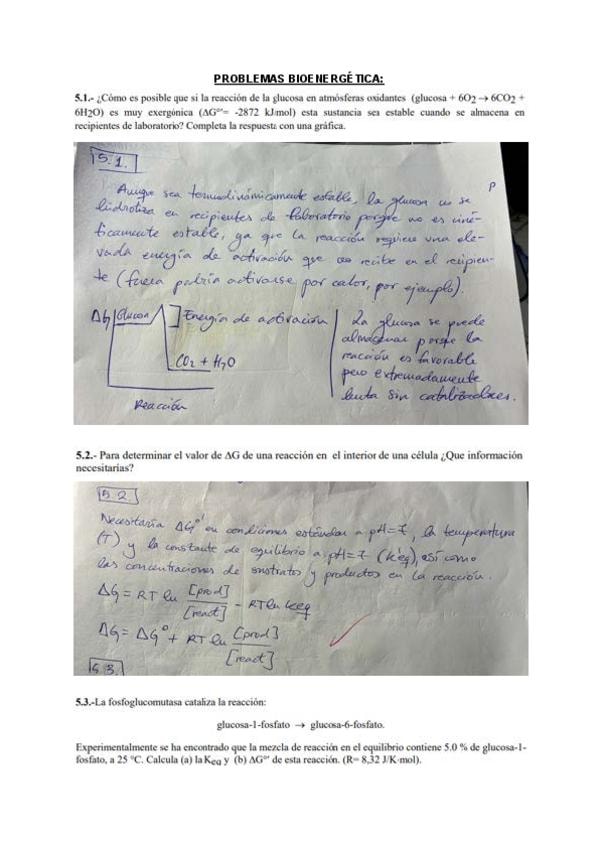 PROBLEMAS BIOENERGÉTICA:
5.1.- ¿Cómo es posible que si la reacción de la glucosa en atmósferas oxidantes (glucosa + 6O2 → 6CO2 +
6H2O) es muy exergónica (ΔG°'= -2872 kJ/mol) esta sustancia sea estable cuando se almacena en
recipientes de laboratorio? Completa la respuesta con una gráfica.
5.1.
P
Aunque sea termodinámicamente estable, la glucosa no se
hidroliza en recipientes de laboratorio porque no es ciné-
ticamente estable, ya que la reacción requiere una ele-
vada energía de activación que no recibe en el recipien-
te (fuera podría activarse por calor, por ejemplo).
ΔG
Glucosa
Energía de activación
CO2 + H2O
Reacción
La glucosa se puede
almacenar porque la
reacción es favorable
pero extremadamente
lenta sin catalizadores.
5.2.- Para determinar el valor de ΔG de una reacción en el interior de una célula ¿Que información
necesitarías?
5.2.
Necesitaría ΔG°' en condiciones estándar a pH=7, la temperatura
(T) y la constante de equilibrio a pH=7 (K'eq), así como
las concentraciones de sustratos y productos en la reacción.
ΔG = RT ln [prod]/[react] - RT ln keq
ΔG = ΔG° + RT ln [prod]/[react]
5.3.
5.3.-La fosfoglucomutasa cataliza la reacción:
glucosa-1-fosfato → glucosa-6-fosfato.
Experimentalmente se ha encontrado que la mezcla de reacción en el equilibrio contiene 5.0 % de glucosa-1-
fosfato, a 25 °C. Calcula (a) la Keq y (b) ΔG°' de esta reacción. (R= 8,32 J/K·mol).